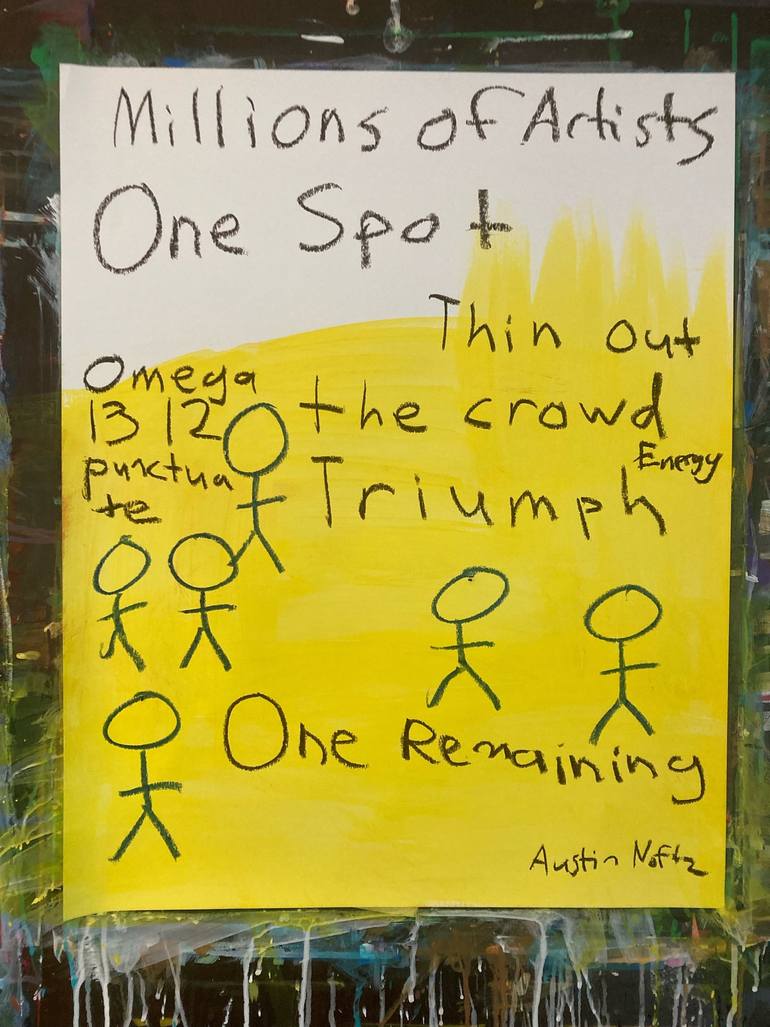 Millions of Artists
One Spot
Thin out
Omega
13 12
the crowd
punctua
te
Energy
Triumph
One Remaining
Austin Noftz